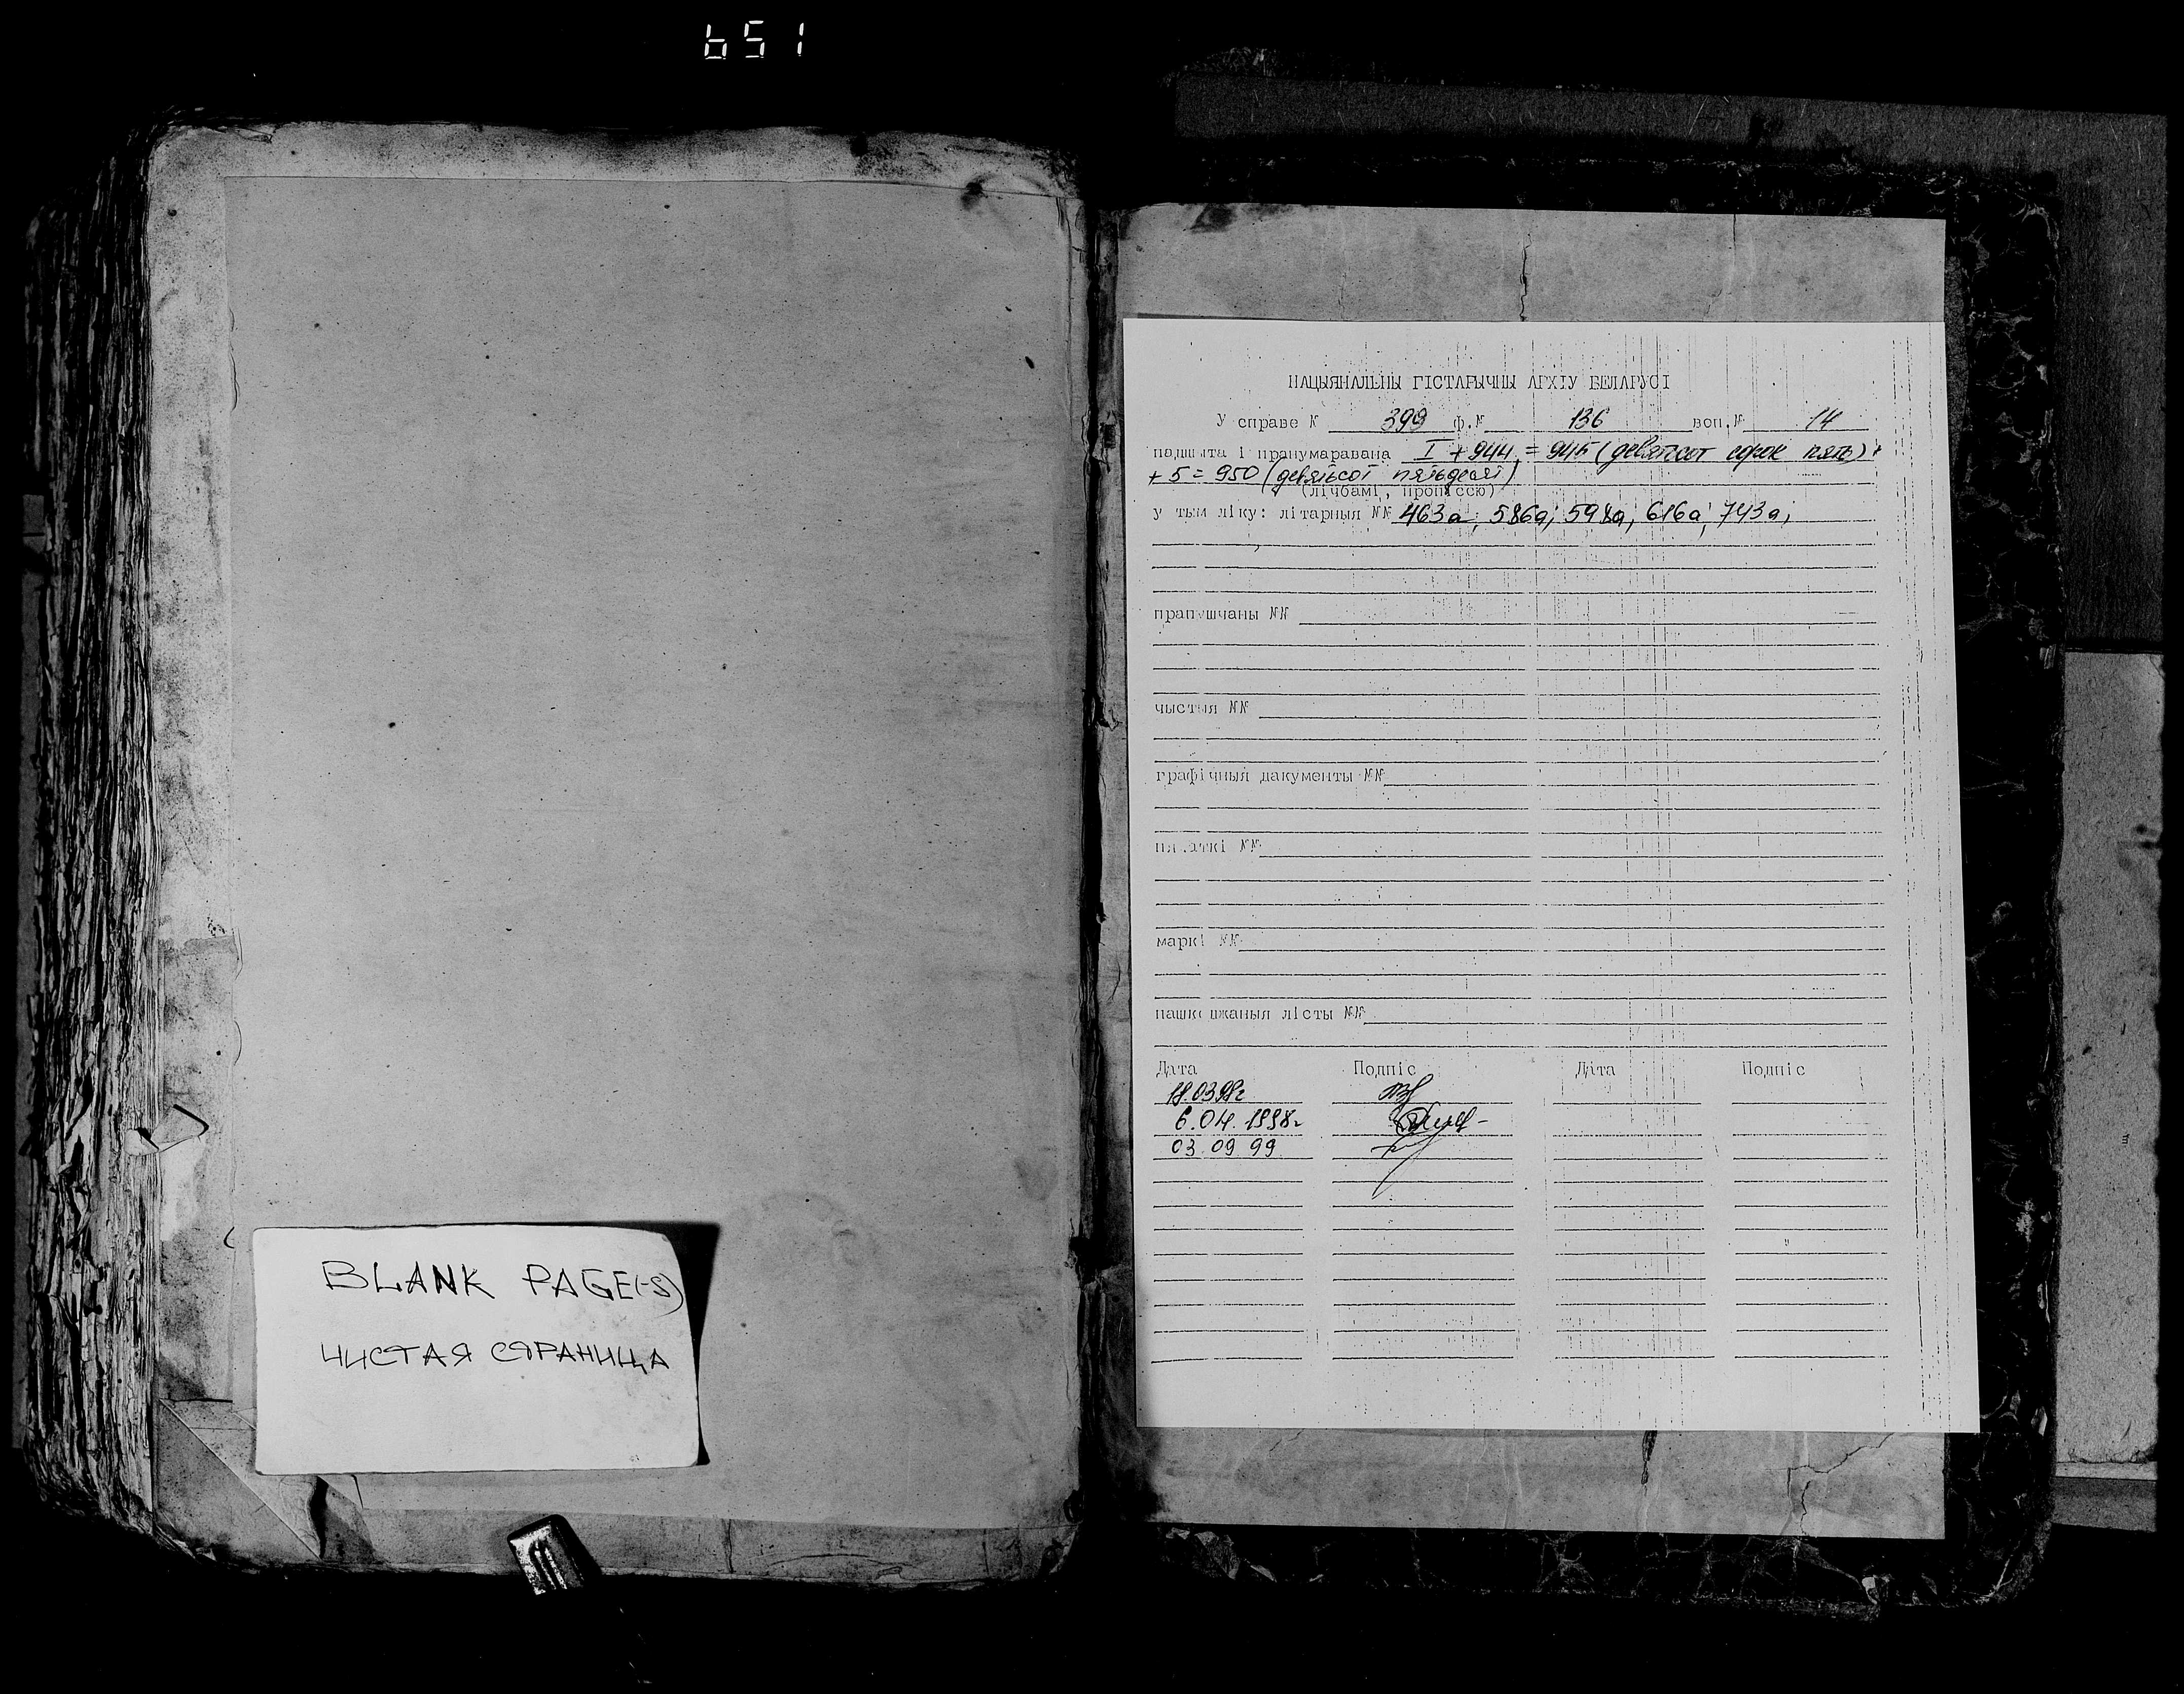 651
НАЦЫЯНАЛЬНЫ ГІСТАРЫЧНЫ АРХІУ БЕЛАРУСІ
У справе № 399 ф.№ 136 воп.№ 14
падшыта і пранумаравана I + 944 = 945 (девятсот сорок пять) +
+ 5 = 950 (девятьсот пятьдесят)
(лічбамі, пропіссю)
у тым ліку: літарныя №№ 463а; 586а; 598а; 616а; 743а;
прапушчаны №№
чыстыя №№
графічныя дакументы №№
маркі №№
пашкоджаныя лісты №№
Дата Подпіс Дата Подпіс
18.03.98г
6.04.1998г
03.09.99
BLANK PAGE(-S)
ЧИСТАЯ СТРАНИЦА